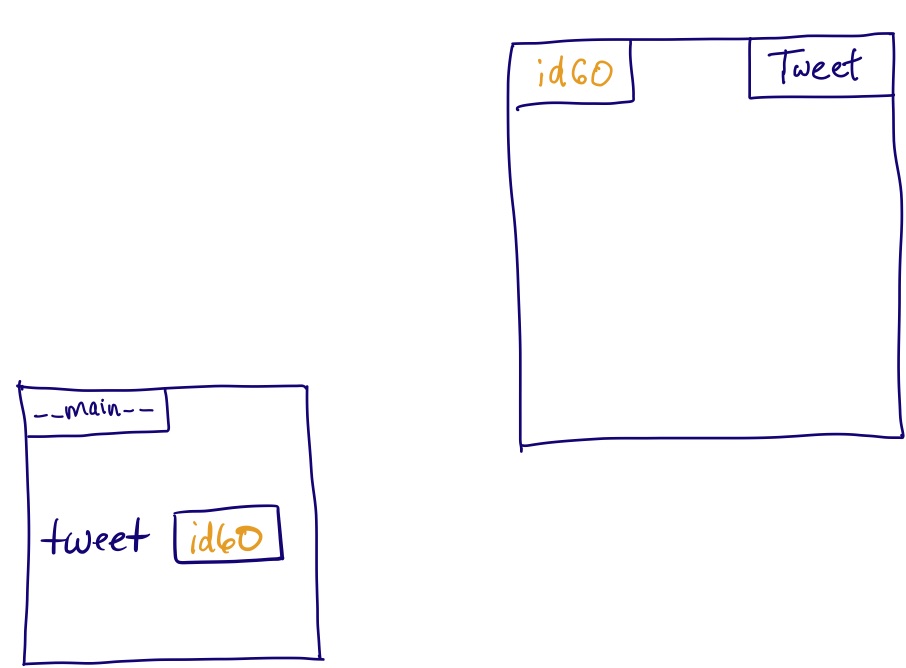 id60
Tweet
__main__
tweet id60